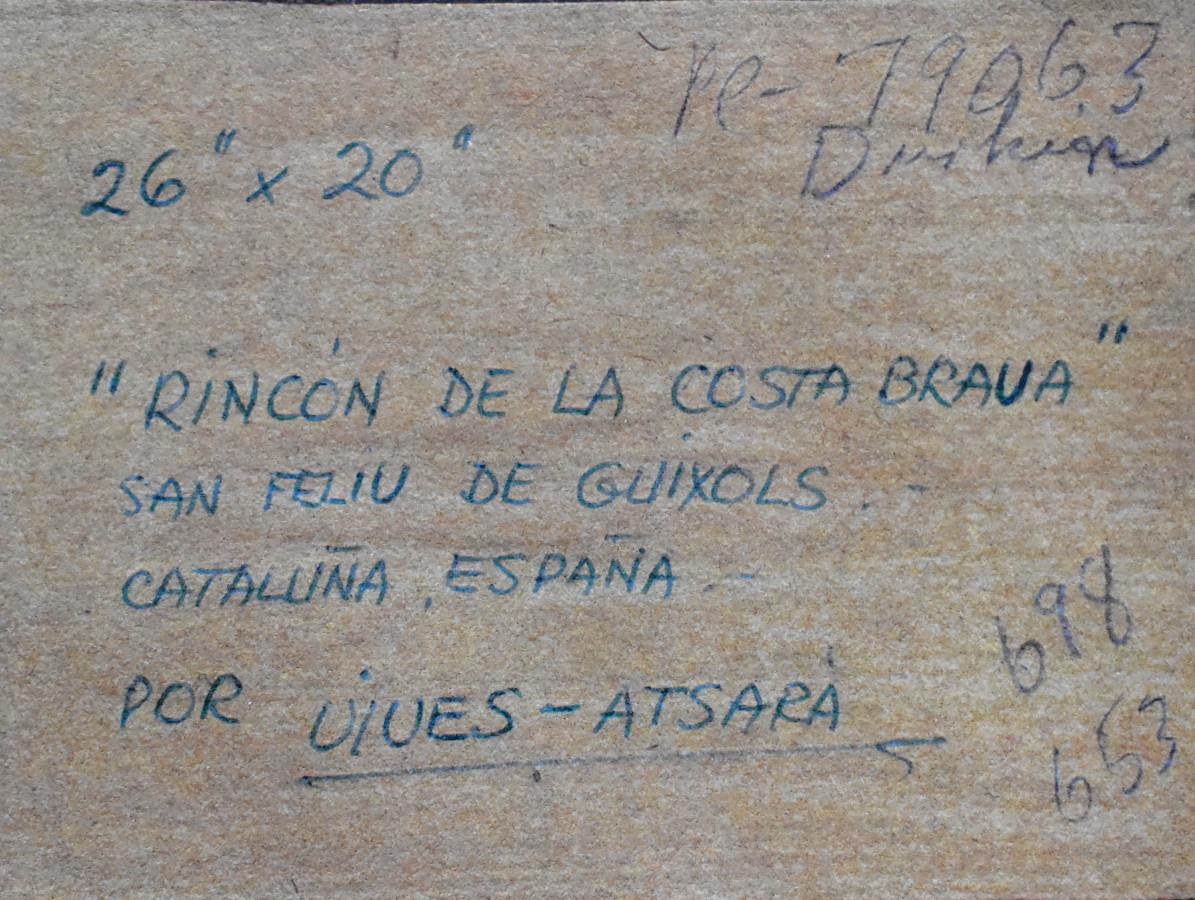 79063
26" x 20"
"RINCÓN DE LA COSTA BRAVA"
SAN FELIU DE GUIXOLS.-
CATALUÑA, ESPAÑA.-
POR VIVES-ATSARÁ
698
653